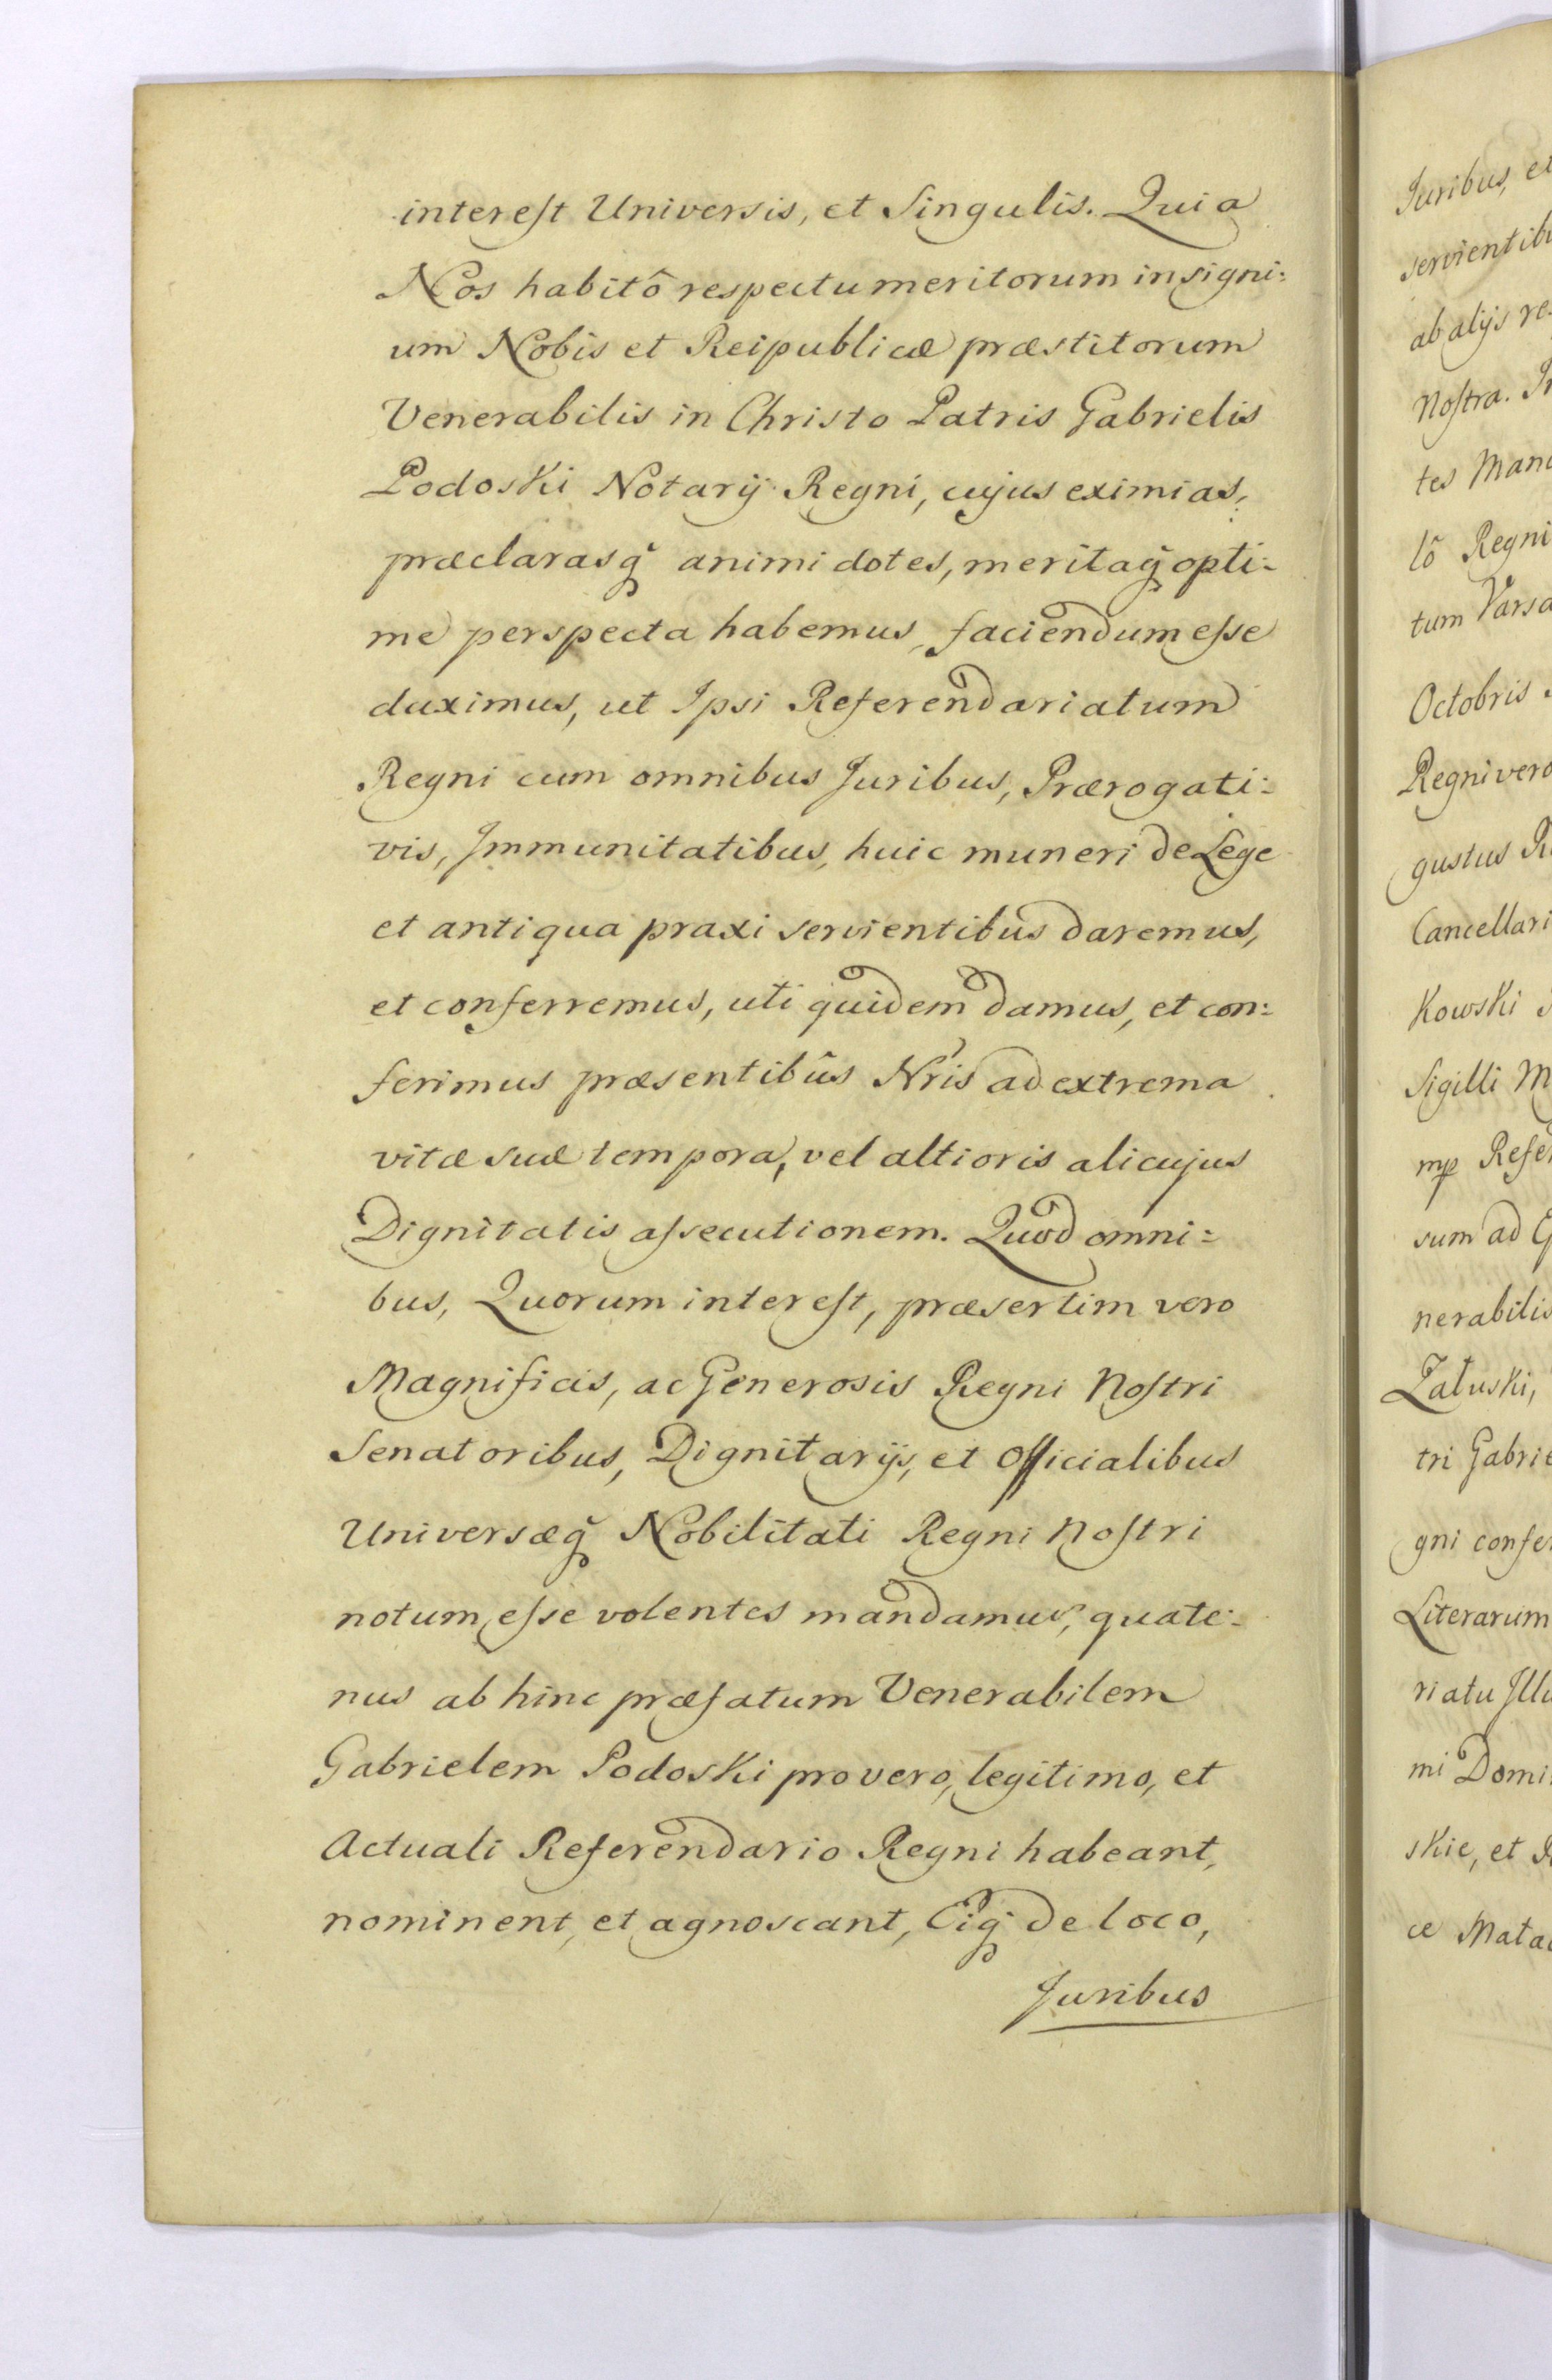 interest Universis, et Singulis. Quia
Nos habitô respectu meritorum insigni:
um Nobis et Reipublicæ præstitorum
Venerabilis in Christo Patris Gabrielis
Podoski Notarij Regni, cujus eximias,
præclarasq̃ animi dotes, meritaq̃ opti:
me perspecta habemus, faciendum esse
duximus, ut Ipsi Referendariatum
Regni cum omnibus Juribus, Prærogati:
vis, Immunitatibus, huic muneri de Lege
et antiqua praxi servientibus daremus,
et conferremus, uti quidem damus, et con:
ferimus præsentibûs Nris ad extrema
vitæ suæ tempora, vel altioris alicujus
Dignitatis assecutionem. Quod omni:
bus, Quorum interest, præsertim vero
Magnificis, ac Generosis Regni Nostri
Senatoribus, Dignitarijs, et Officialibus
Universæq̃ Nobilitati Regni Nostri
notum esse volentes mandamus, quate:
nus ab hinc præfatum Venerabilem
Gabrielem Podoski pro vero, legitimo, et
Actuali Referendario Regni habeant,
nominent, et agnoscant, Eiq̃ de loco,
Juribus
Juribus, et
servientibu
ab alijs re
Nostra. In
tes Man
lô Regni
tum Varsa
Octobris
Regni vero
gustus R
Cancellari
Kowski
Sigilli M
mp Refer
sum ad G
nerabilis
Załuski,
tri Gabrie
gni confer
Literarum
riatu Illu
mi Domi
skie, et
ce Mata